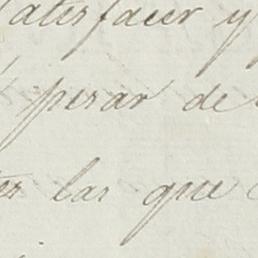 satisfacer y
pesar de
las que